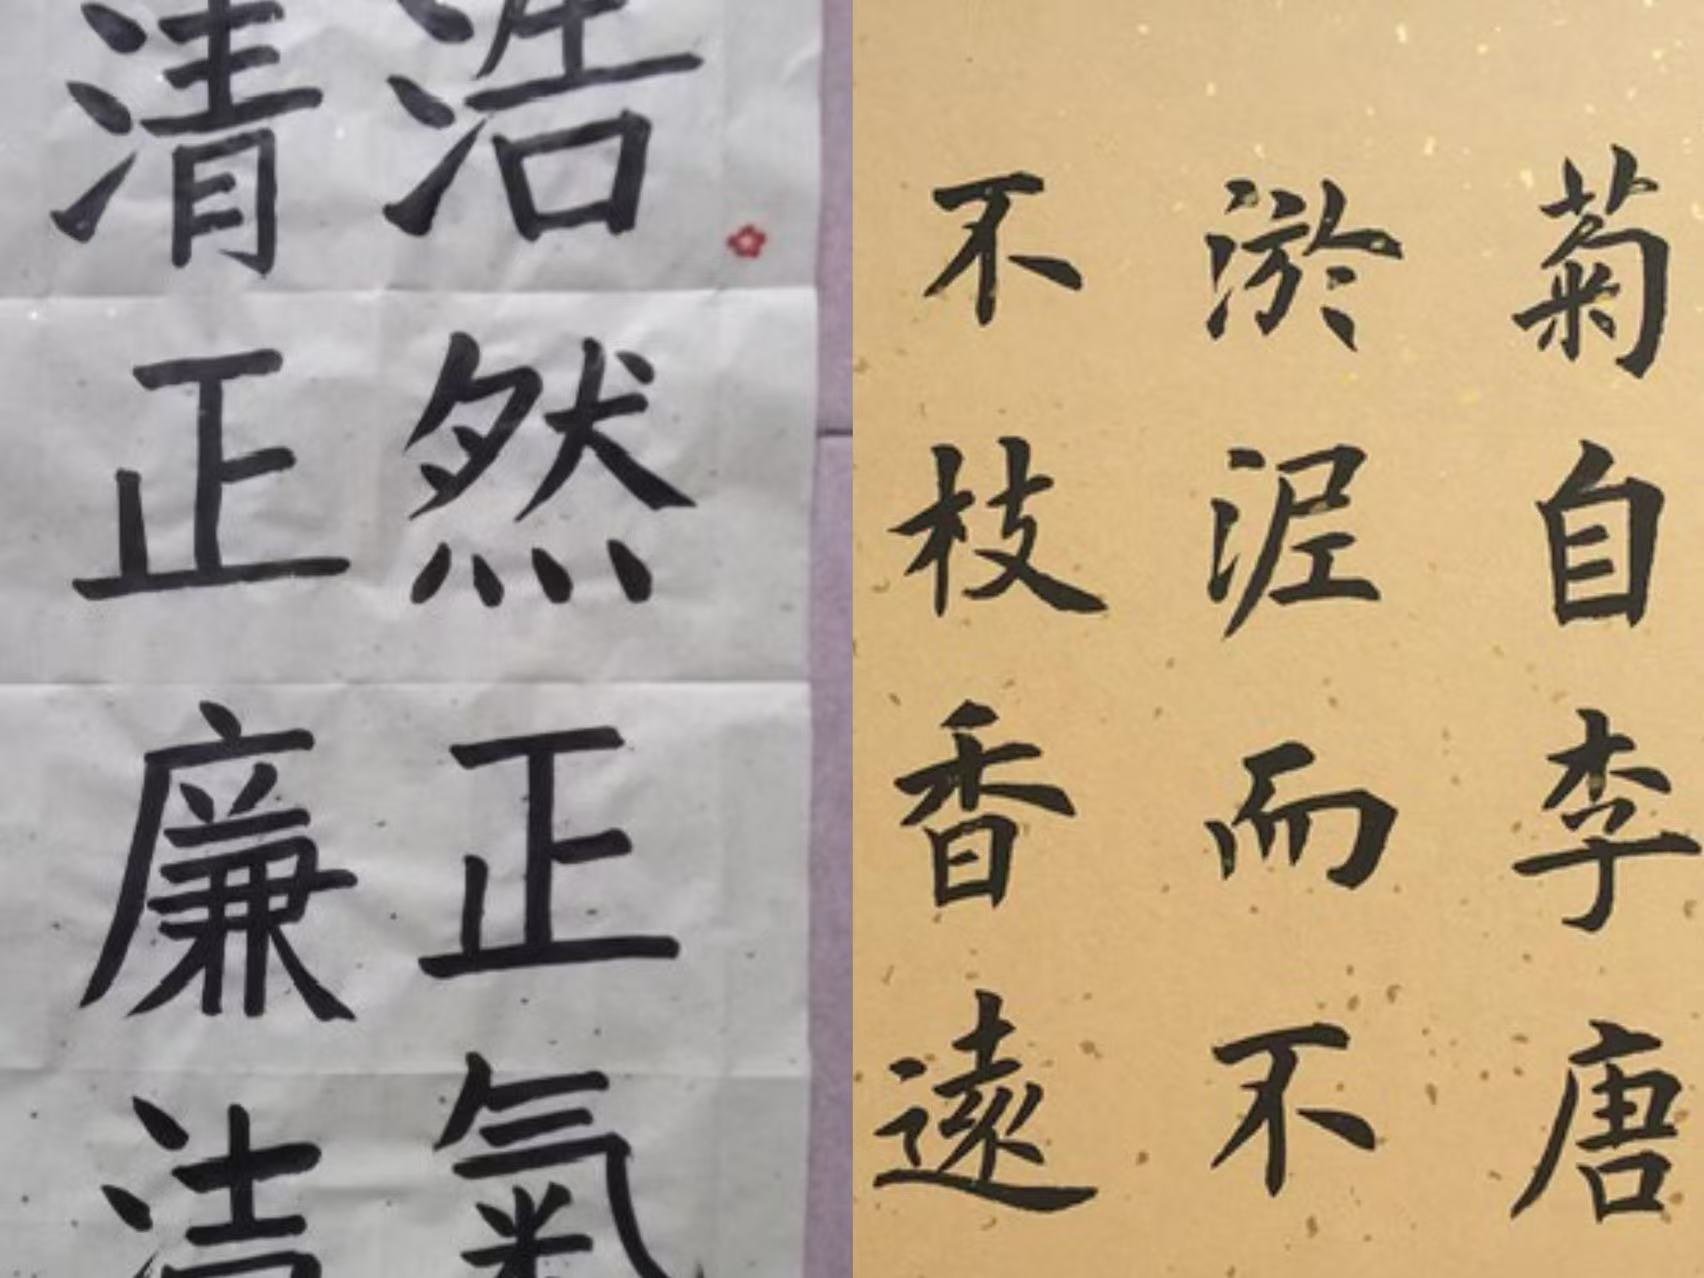 浩然正氣
清正廉洁
菊自李唐
淤泥而不
不枝香遠